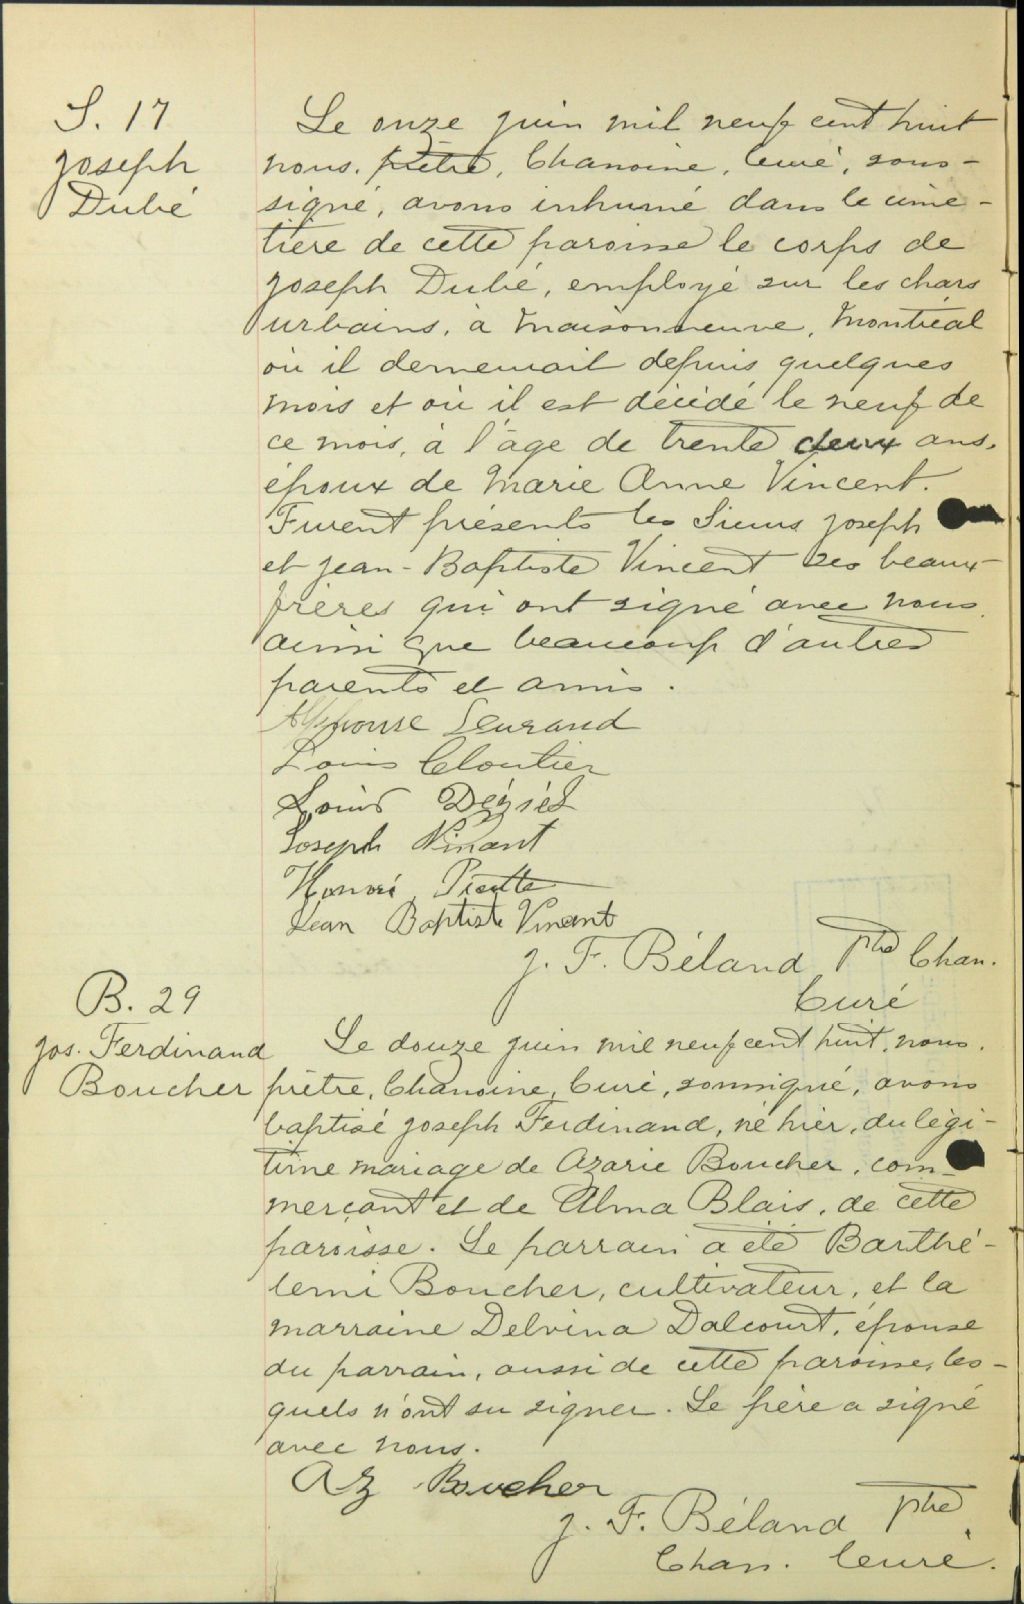 S. 17
Joseph
Dubé
Le onze juin mil neuf cent huit
nous, prêtre, Chanoine, Curé, sous-
signé, avons inhumé dans le cime-
tière de cette paroisse le corps de
Joseph Dubé, employé sur les chars
urbains, à Maisonneuve, Montréal
où il demeurait depuis quelques
mois et où il est décédé le neuf de
ce mois, à l'âge de trente deux ans,
époux de Marie Anne Vincent.
Furent présents les Sieurs Joseph
et Jean-Baptiste Vincent ses beaux-
frères qui ont signé avec nous
ainsi que beaucoup d'autres
parents et amis.
Alphonse
Louis Cloutier
Louis Déziel
Joseph Vinant
Honoré Piette
Jean Baptiste Vincent
J. F. Béland Ptre Chan.
Curé
B. 29
Jos. Ferdinand
Boucher
Le douze juin mil neuf cent huit, nous,
prêtre, Chanoine, Curé, soussigné, avons
baptisé Joseph Ferdinand, né hier, du légi-
time mariage de Azarie Boucher, com-
merçant et de Alma Blais, de cette
paroisse. Le parrain a été Barthé-
lemi Boucher, cultivateur, et la
marraine Delvina Dalcourt, épouse
du parrain, aussi de cette paroisse, les-
quels n'ont su signer. Le père a signé
avec nous.
Az Boucher
J. F. Béland Ptre
Chan. Curé.